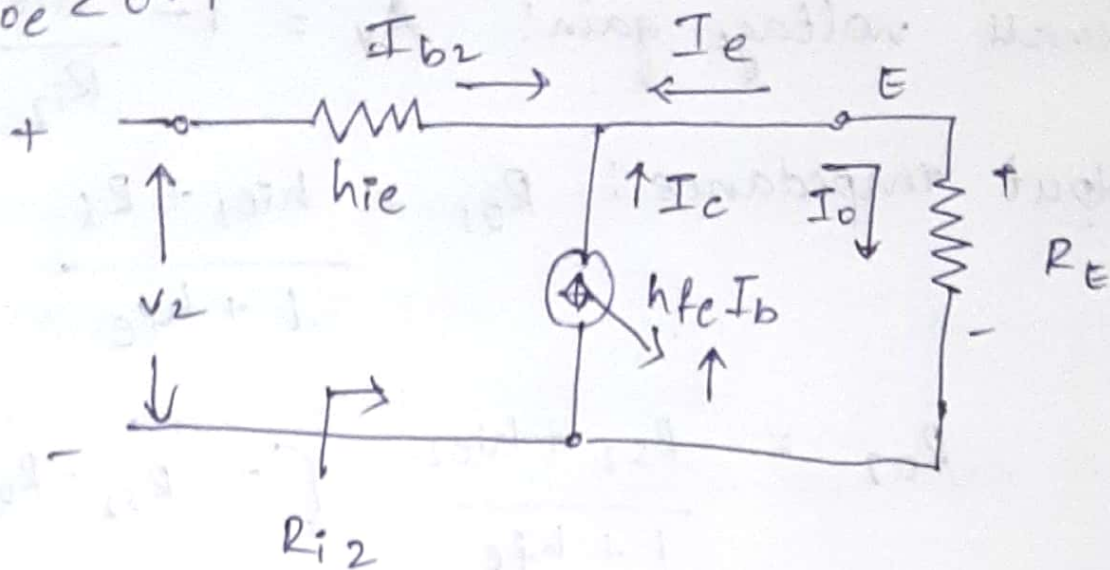 oe < 0.1
Ib2 Ie E
+ hie ↑Ic Io RE
V2 hfe Ib
- -
Ri2